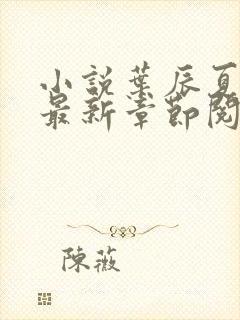 小說葉辰夏
最新章節閱
陳薇